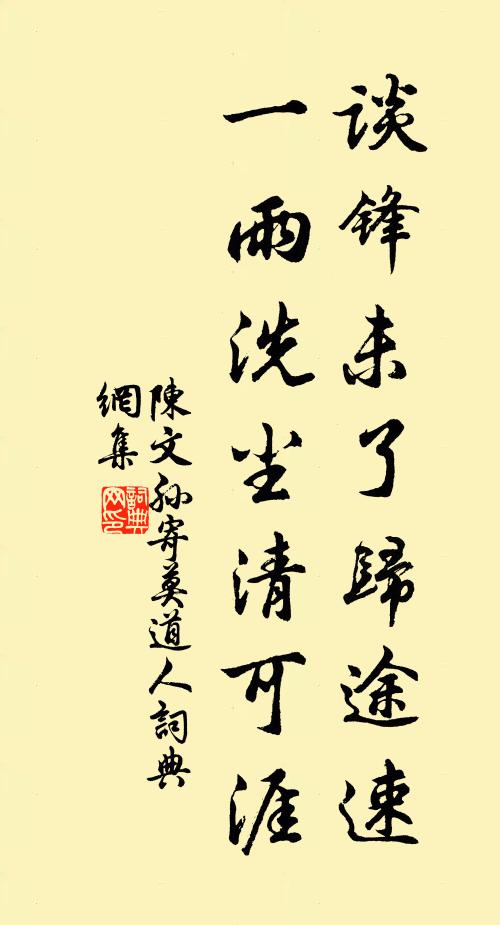 谈锋未了歸途速
一雨洗尘清可涯
陳文孙寄莫道人詞典
網集
詞典
网印